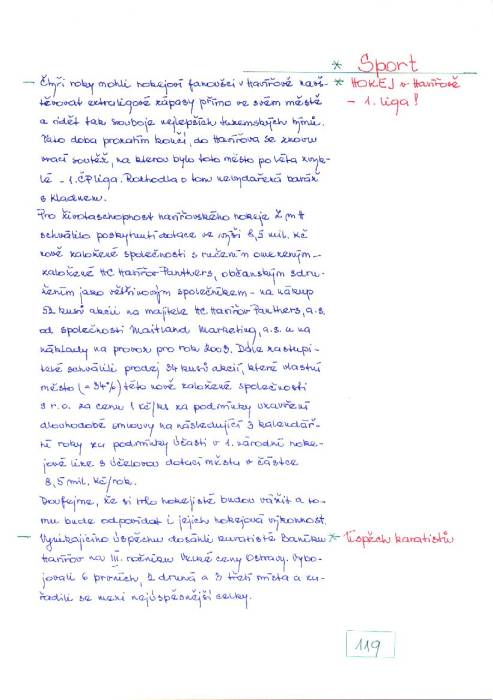 * Sport
— Čtyři roky mohli hokejoví fanoušci v Havířově navš-
těvovat extraligové zápasy přímo ve svém městě
a vidět tak souboje nejlepších tuzemských týmů.
Tato doba prozatím končí, do Havířova se znovu
vrací soutěž, na kterou bylo toto město po léta zvyk-
lé - 1. ČP liga. Rozhodla o tom nevydařená baráž
s Kladnem.
* HOKEJ v Havířově
- 1. liga!
Pro životaschopnost havířovského hokeje ZmH
schválilo poskytnutí dotace ve výši 8,5 mil. Kč
nově založené společnosti s ručením omezeným -
založené HC Havířov Panthers, občanským sdru-
žením jako většinovým společníkem - na nákup
52 kusů akcií na majitele HC Havířov Panthers, a.s.
od společnosti Maitland Marketing, a.s. a na
náklady na provoz pro rok 2003. Dále zastupi-
telé schválili prodej 34 kusů akcií, které vlastní
město (= 34%) této nově založené společnosti
s r.o. za cenu 1 Kč/ks za podmínky uzavření
dlouhodobé smlouvy na následující 3 kalendář-
ní roky za podmínky účasti v 1. národní hoke-
jové lize s účelovou dotací města v částce
8,5 mil. Kč/rok.
Doufejme, že si toho hokejisté budou vážit a to-
mu bude odpovídat i jejich hokejová výkonnost.
— Vynikajícího úspěchu dosáhli karatisté Baníku
Havířov na III. ročníku Velké ceny Ostravy. Vybo-
jovali 6 prvních, 2 druhá a 3 třetí místa a za-
řadili se mezi nejúspěšnější celky.
* Úspěch karatistů
119